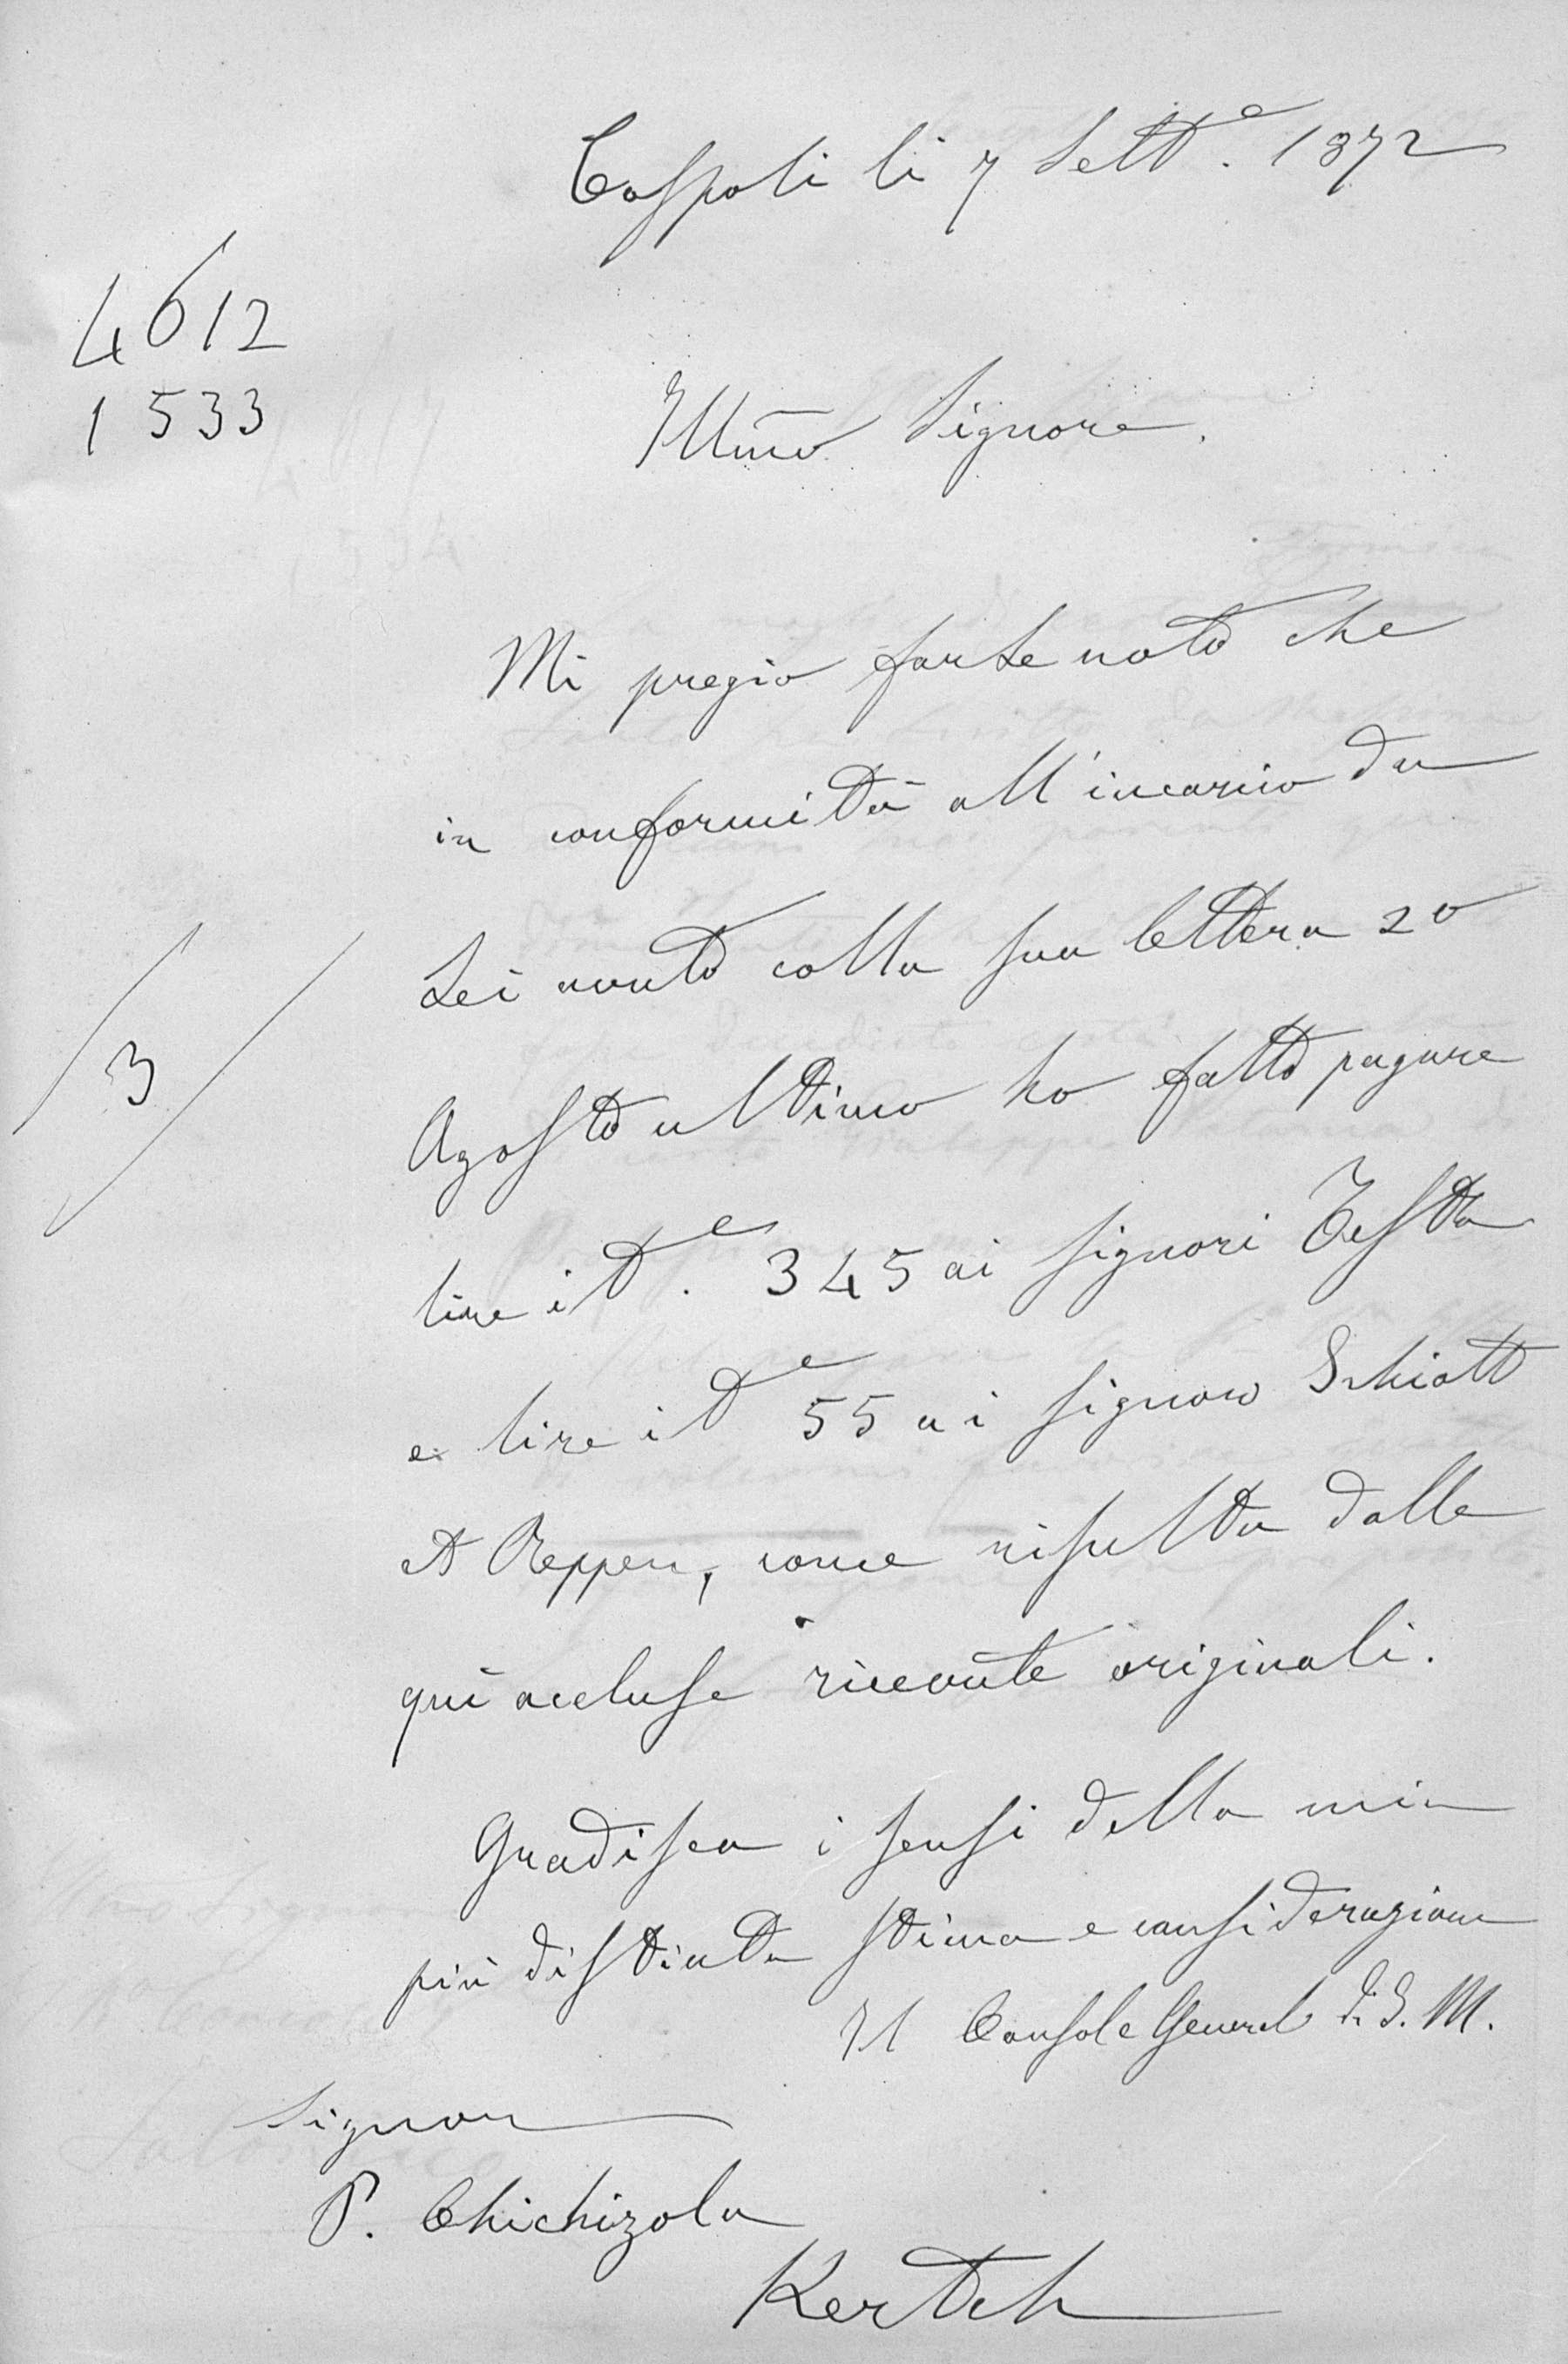 Cospoli li 7 Sett.e 1872
4612
1533
Illmo Signore.
Mi pregio farLe noto che
in conformità all'incarico da
Lei avuto colla sua lettera 20
Agosto ultimo ho fatto pagare
3
lire it.e 345 ai signori Testa
e lire it.e 55 ai signori Schiott
et Reppen, come risulta dalle
qui accluse ricevute originali.
Gradisca i sensi della mia
più distinta stima e considerazione
Il Console Generale di S. M.
Signor
P. Chichizola
Kertch